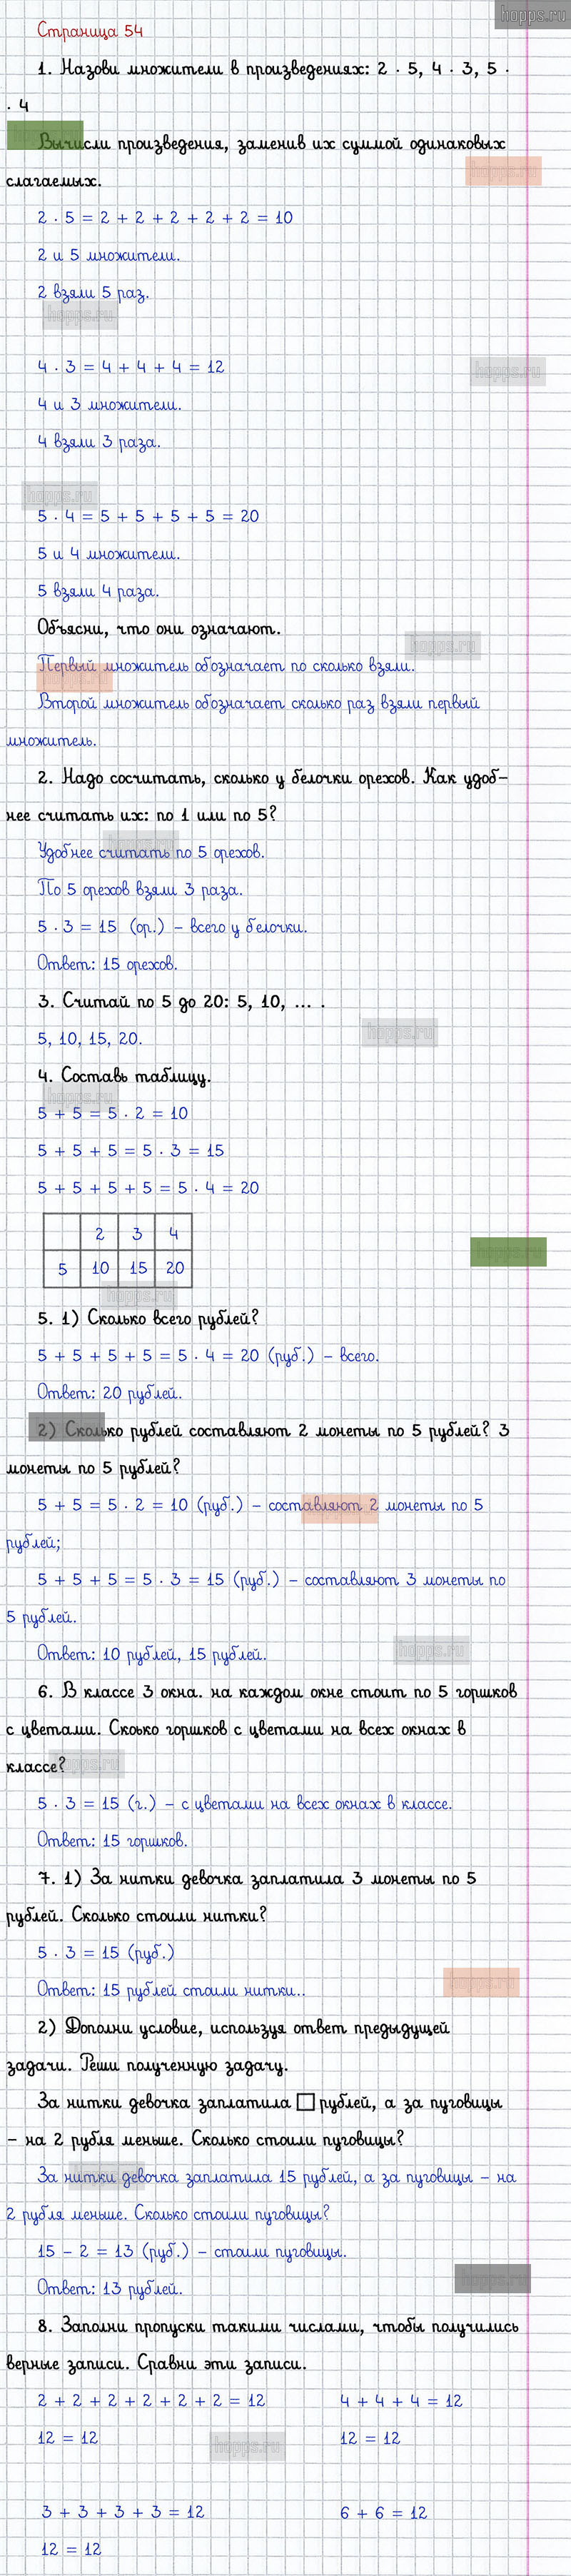 hopps.ru
Страница 54
1. Назови множители в произведениях: 2 · 5, 4 · 3, 5 ·
· 4
Вычисли произведения, заменив их суммой одинаковых
hopps.ru
слагаемых.
2 · 5 = 2 + 2 + 2 + 2 + 2 = 10
2 и 5 множители.
2 взяли 5 раз.
hopps.ru
4 · 3 = 4 + 4 + 4 = 12
hopps.ru
4 и 3 множители.
4 взяли 3 раза.
hopps.ru
5 · 4 = 5 + 5 + 5 + 5 = 20
5 и 4 множители.
5 взяли 4 раза.
Объясни, что они означают.
hopps.ru
Первый множитель обозначает по сколько взяли.
Второй множитель обозначает сколько раз взяли первый
множитель.
2. Надо сосчитать, сколько у белочки орехов. Как удоб-
нее считать их: по 1 или по 5?
Удобнее считать по 5 орехов.
По 5 орехов взяли 3 раза.
5 · 3 = 15 (ор.) – всего у белочки.
Ответ: 15 орехов.
3. Считай по 5 до 20: 5, 10, ... .
hopps.ru
5, 10, 15, 20.
4. Составь таблицу.
hopps.ru
5 + 5 = 5 · 2 = 10
5 + 5 + 5 = 5 · 3 = 15
5 + 5 + 5 + 5 = 5 · 4 = 20
2 3 4
hopps.ru
5 10 15 20
hopps.ru
5. 1) Сколько всего рублей?
5 + 5 + 5 + 5 = 5 · 4 = 20 (руб.) – всего.
Ответ: 20 рублей.
2) Сколько рублей составляют 2 монеты по 5 рублей? 3
монеты по 5 рублей?
5 + 5 = 5 · 2 = 10 (руб.) – составляют 2 монеты по 5
рублей;
5 + 5 + 5 = 5 · 3 = 15 (руб.) – составляют 3 монеты по
5 рублей.
Ответ: 10 рублей, 15 рублей.
hopps.ru
6. В классе 3 окна. на каждом окне стоит по 5 горшков
с цветами. Скоько горшков с цветами на всех окнах в
классе?
hopps.ru
5 · 3 = 15 (г.) – с цветами на всех окнах в классе.
Ответ: 15 горшков.
7. 1) За нитки девочка заплатила 3 монеты по 5
рублей. Сколько стоили нитки?
5 · 3 = 15 (руб.)
hopps.ru
Ответ: 15 рублей стоили нитки..
2) Дополни условие, используя ответ предыдущей
задачи. Реши полученную задачу.
За нитки девочка заплатила □ рублей, а за пуговицы
– на 2 рубля меньше. Сколько стоили пуговицы?
За нитки девочка заплатила 15 рублей, а за пуговицы – на
2 рубля меньше. Сколько стоили пуговицы?
15 – 2 = 13 (руб.) – стоили пуговицы.
hopps.ru
Ответ: 13 рублей.
8. Заполни пропуски такими числами, чтобы получились
верные записи. Сравни эти записи.
2 + 2 + 2 + 2 + 2 + 2 = 12 4 + 4 + 4 = 12
12 = 12 12 = 12
hopps.ru
3 + 3 + 3 + 3 = 12 6 + 6 = 12
12 = 12